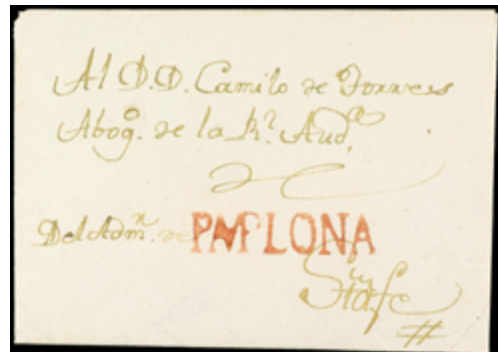 Al D.D. Camilo de Torres
Abogº. de la Rˡ. Audᵃ.
de
Del Admʳ. de PAMPLONA
Stafe